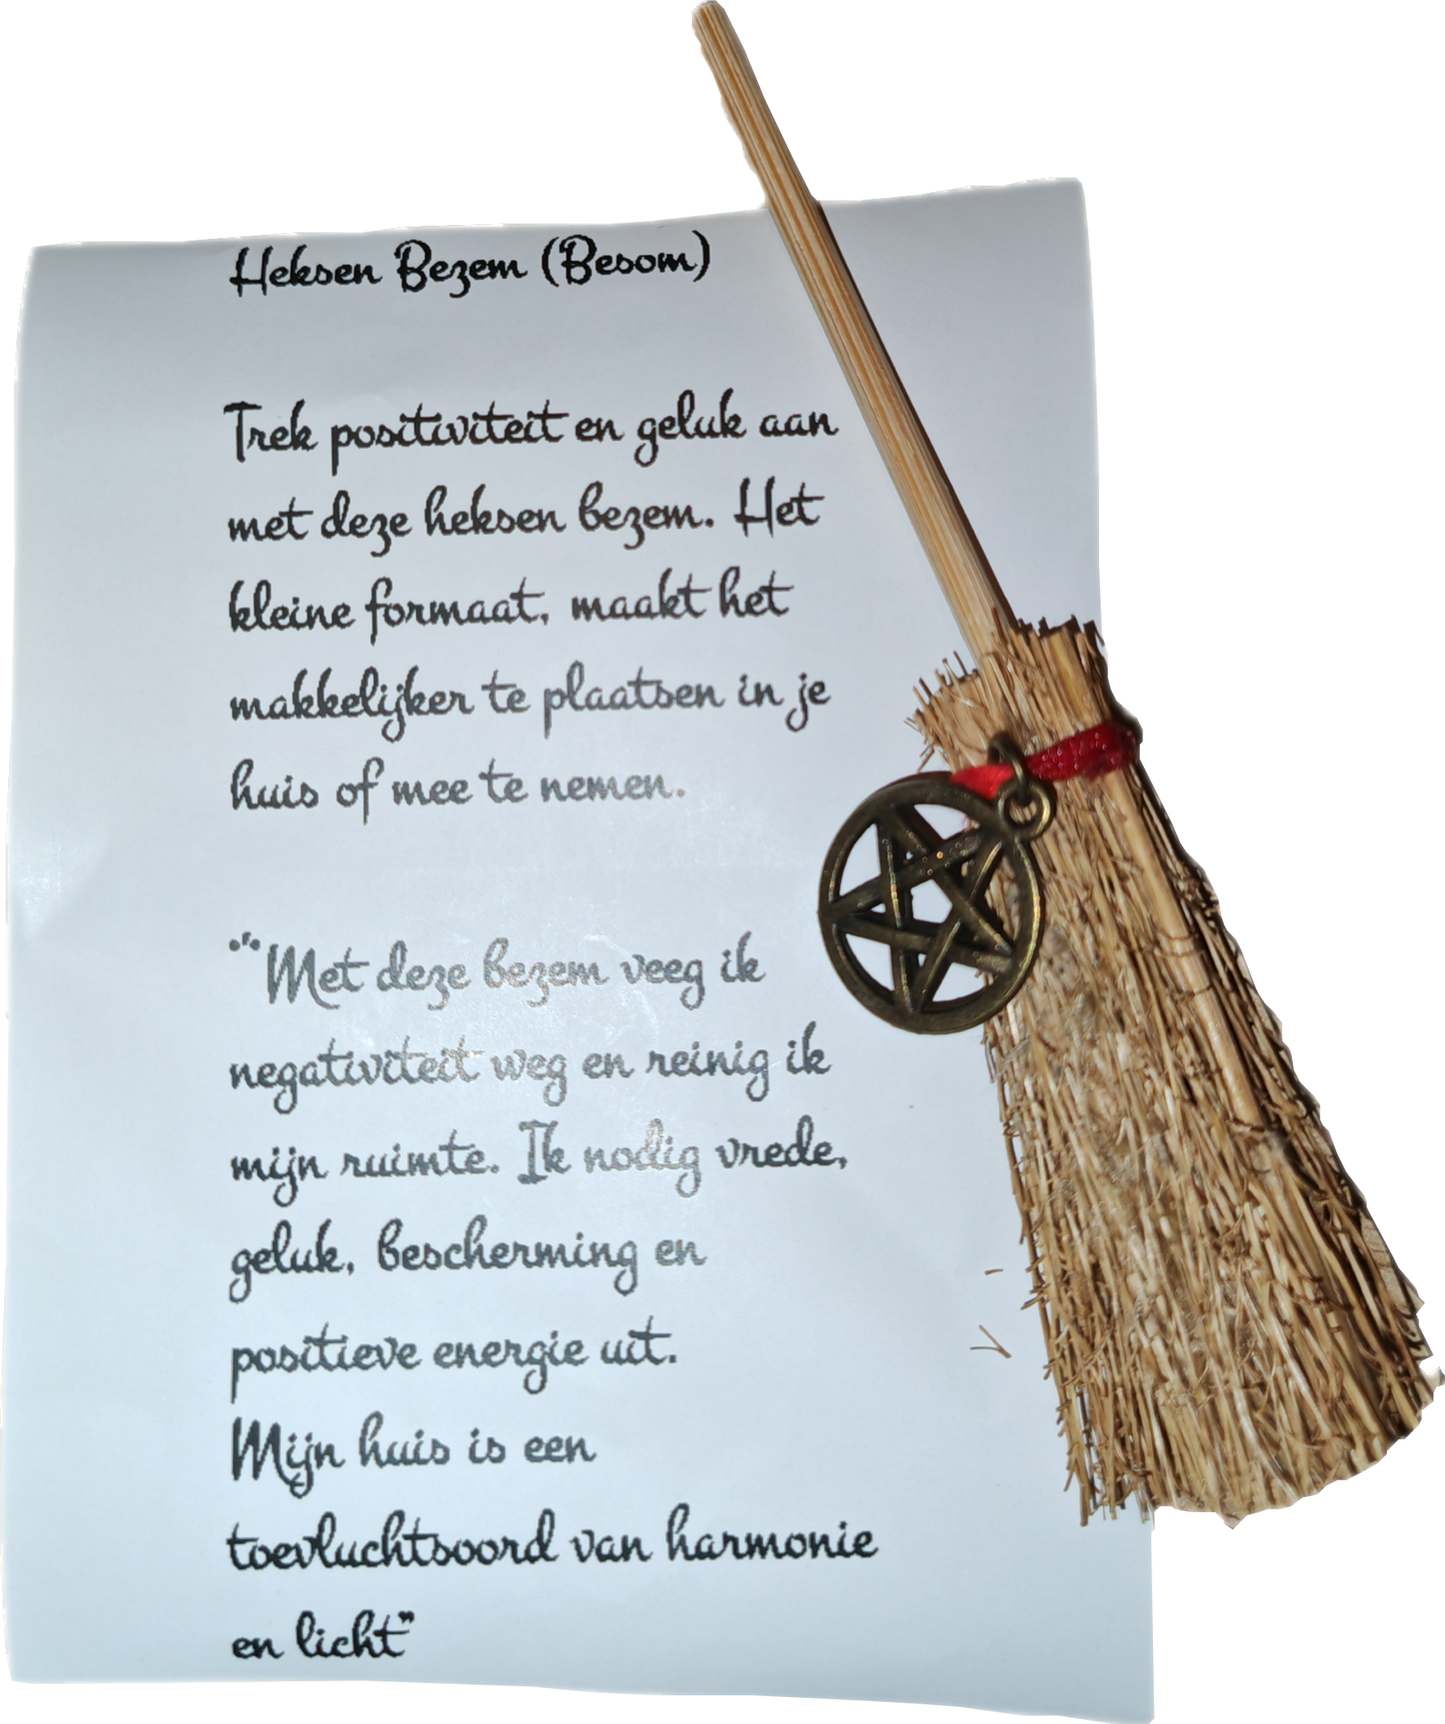 Heksen Bezem (Besom)
Trek positiviteit en geluk aan
met deze heksen bezem. Het
kleine formaat, maakt het
makkelijker te plaatsen in je
huis of mee te nemen.
"“Met deze bezem veeg ik
negativiteit weg en reinig ik
mijn ruimte. Ik nodig vrede,
geluk, bescherming en
positieve energie uit.
Mijn huis is een
toevluchtsoord van harmonie
en licht”